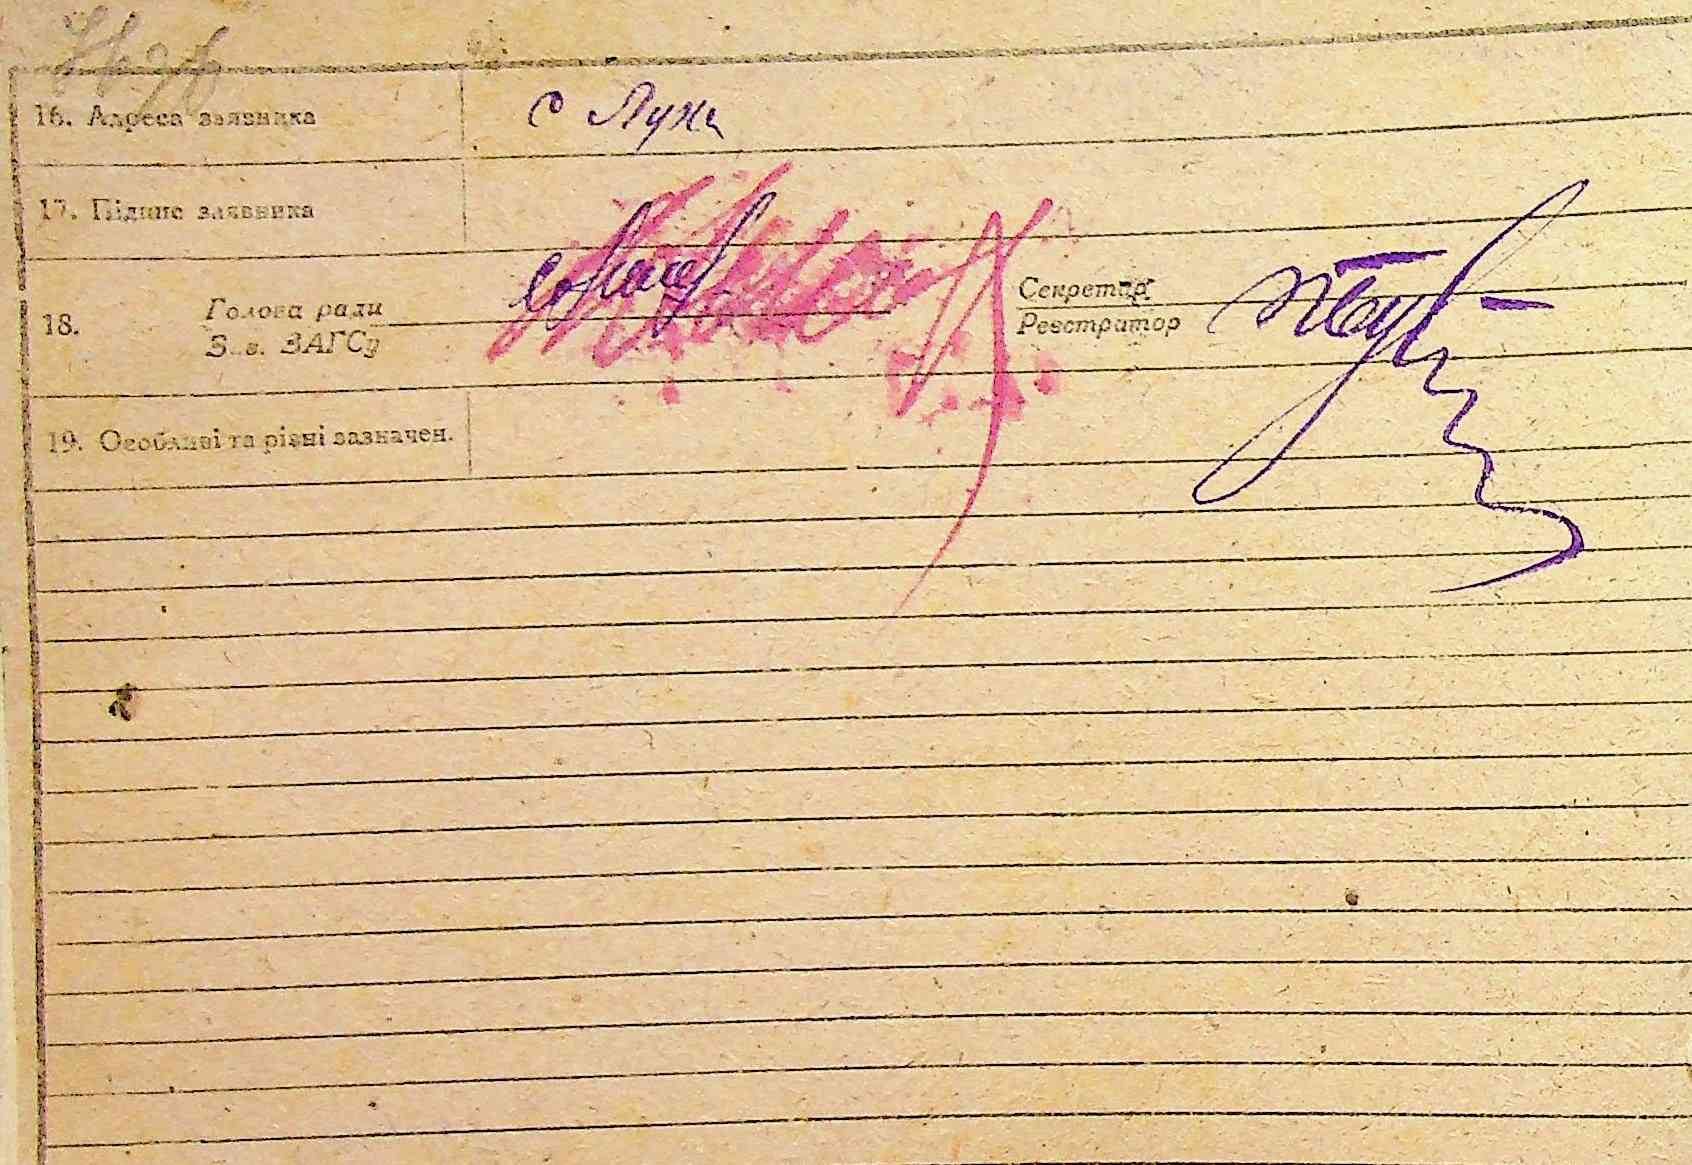 16. Адреса заявника с Лука
17. Підпис заявника
18. Голова ради Секретар
Зав. ЗАГСу Реєстратор
19. Особливі та різні зазначен.